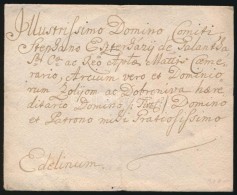 Illustrissimo Domino Comiti
Stephano Eszterhazij de Galantha
S: C: ac Reg Aptæ Mattis Came,
rario, Arcium vero et Dominio,
rum Zolyom ac Dobreniva hære
ditario Domino, Domino
et Patrono mihi Gratiosissimo
Edelinum.